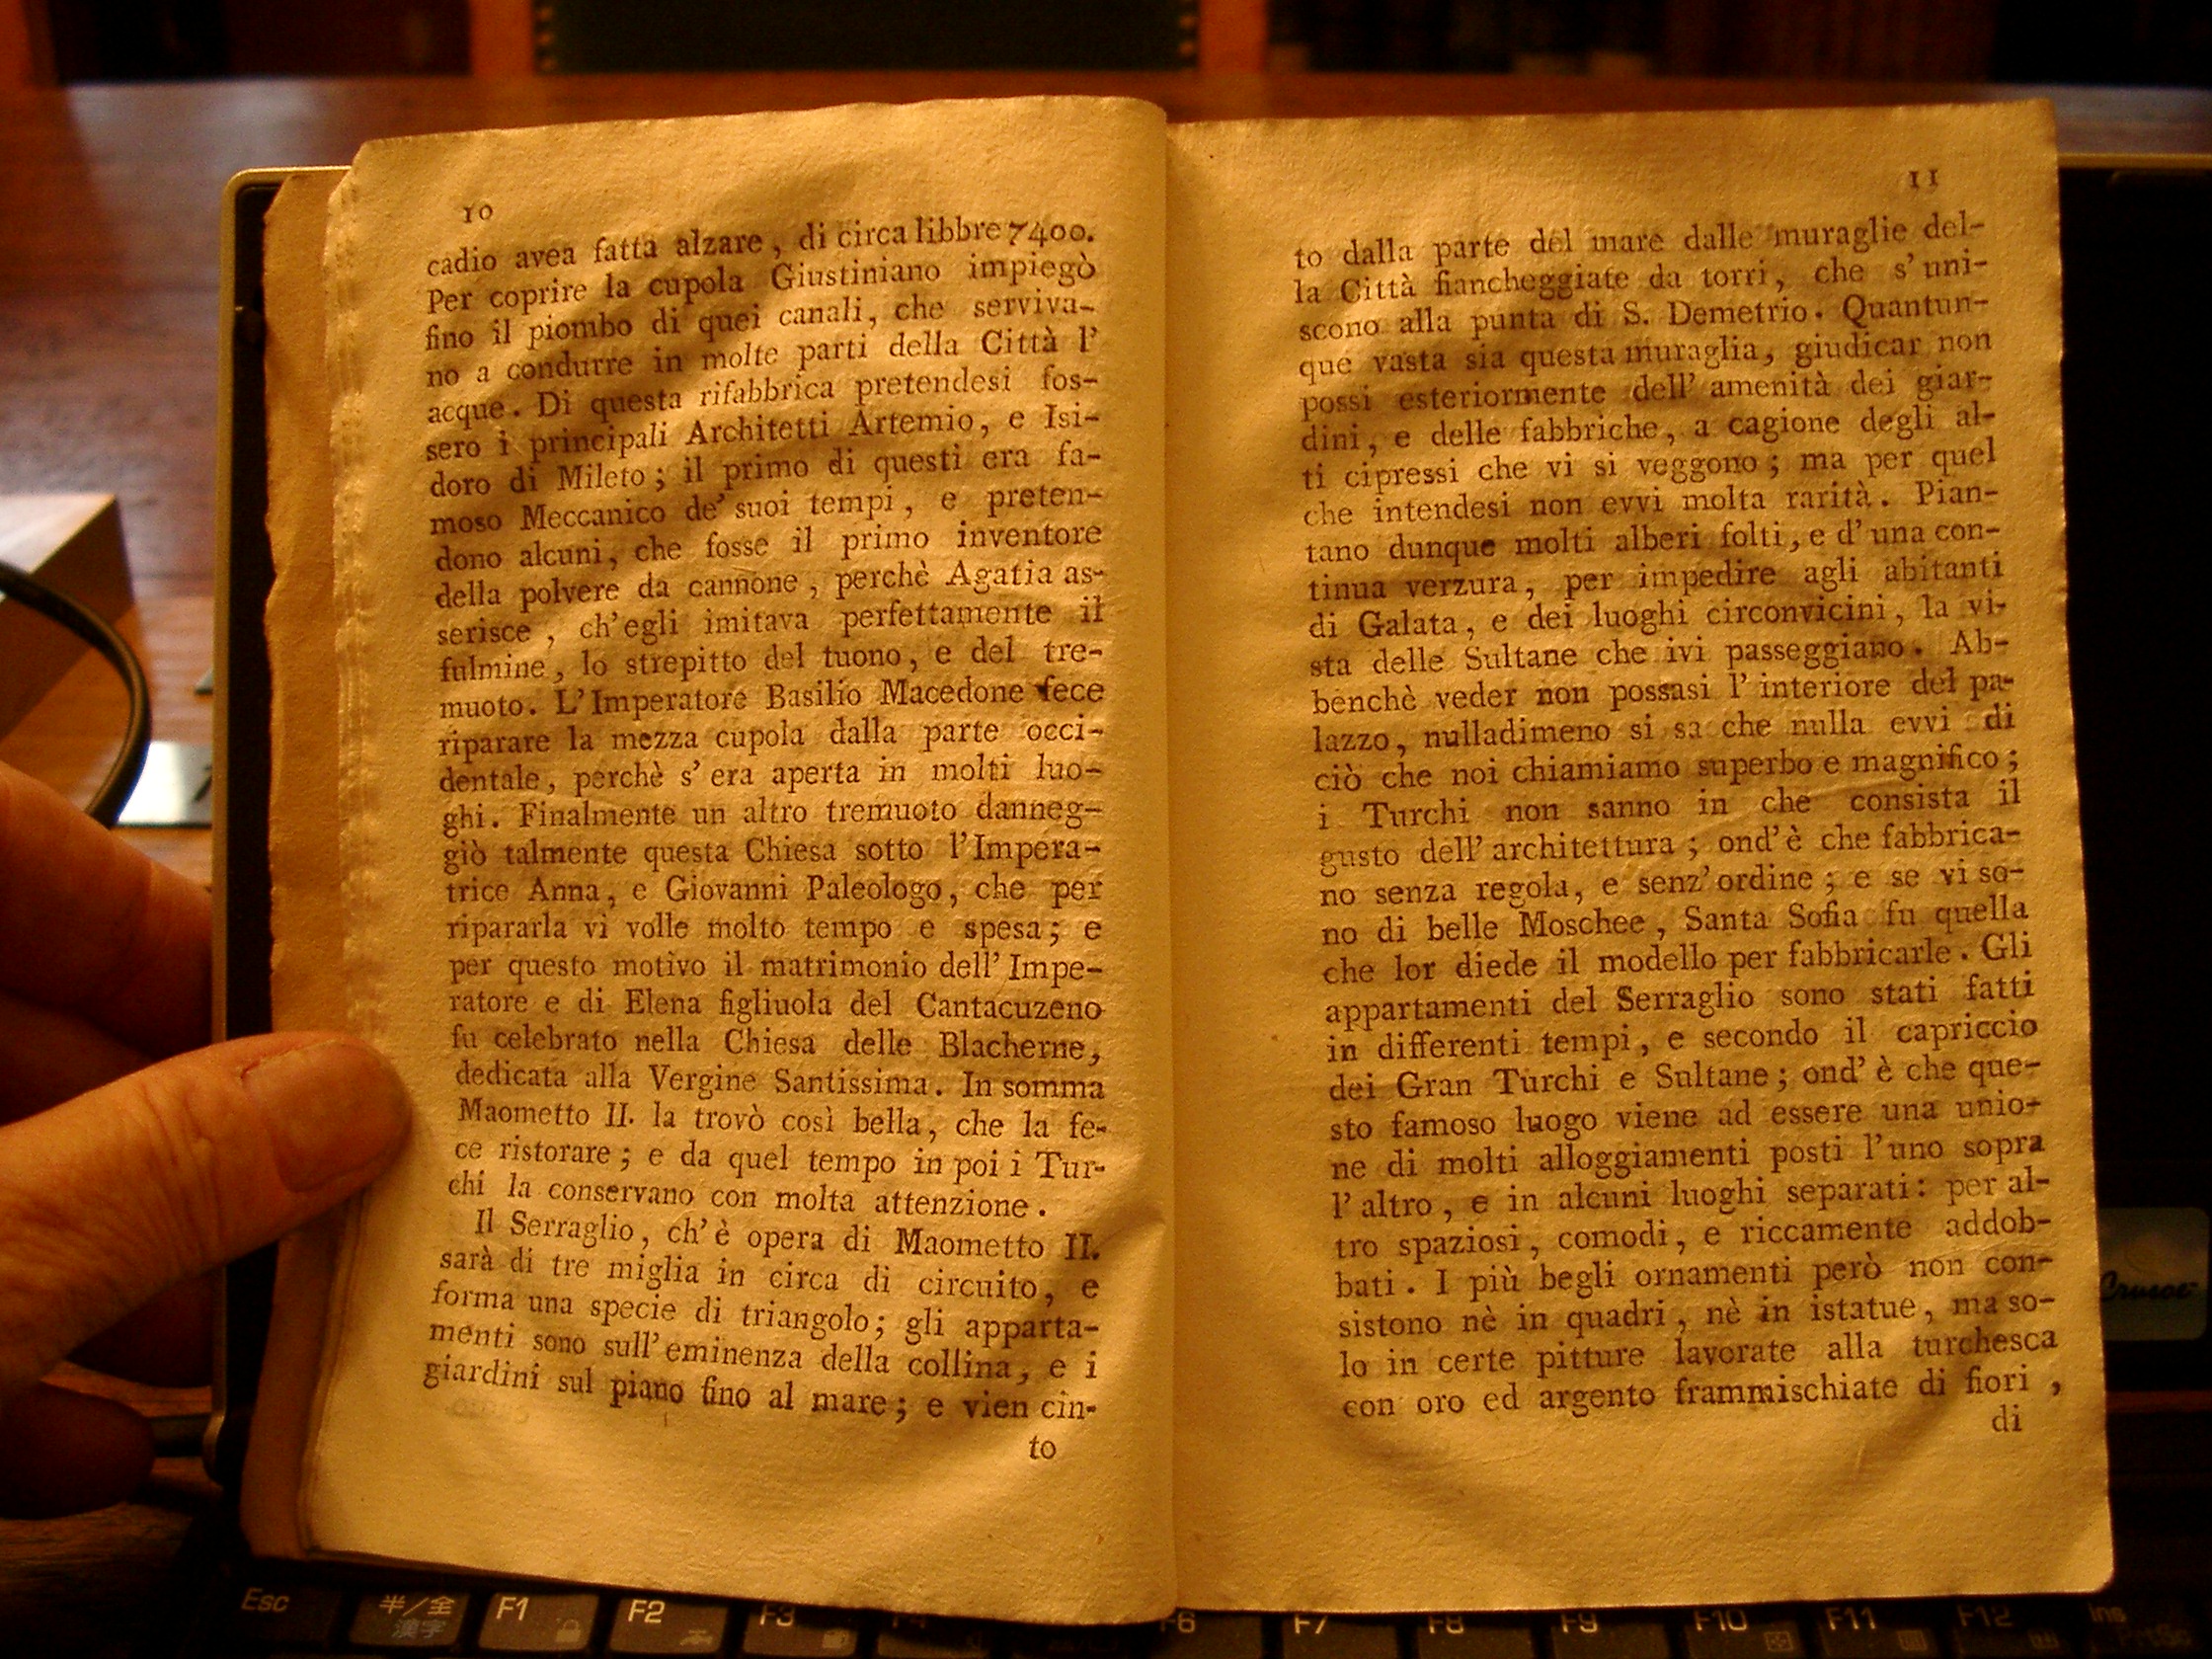 10
cadio avea fatta alzare, di circa libbre 7400.
Per coprire la cupola Giustiniano impiegò
fino il piombo di quei canali, che serviva-
no a condurre in molte parti della Città l'
acque. Di questa rifabbrica pretendesi fos-
sero i principali Architetti Artemio, e Isi-
doro di Mileto; il primo di questi era fa-
moso Meccanico de' suoi tempi, e preten-
dono alcuni, che fosse il primo inventore
della polvere da cannone, perchè Agatia as-
serisce, ch'egli imitava perfettamente il
fulmine, lo strepitto del tuono, e del tre-
muoto. L'Imperatore Basilio Macedone fece
riparare la mezza cupola dalla parte occi-
dentale, perchè s'era aperta in molti luo-
ghi. Finalmente un altro tremuoto danneg-
giò talmente questa Chiesa sotto l'Impera-
trice Anna, e Giovanni Paleologo, che per
ripararla vi volle molto tempo e spesa; e
per questo motivo il matrimonio dell'Impe-
ratore e di Elena figliuola del Cantacuzeno
fu celebrato nella Chiesa delle Blacherne,
dedicata alla Vergine Santissima. In somma
Maometto II. la trovò così bella, che la fe-
ce ristorare; e da quel tempo in poi i Tur-
chi la conservano con molta attenzione.
Il Serraglio, ch'è opera di Maometto II.
sarà di tre miglia in circa di circuito, e
forma una specie di triangolo; gli apparta-
menti sono sull'eminenza della collina, e i
giardini sul piano fino al mare; e vien cin-
to
11
to dalla parte del mare dalle muraglie del-
la Città fiancheggiate da torri, che s'uni-
scono alla punta di S. Demetrio. Quantun-
que vasta sia questa muraglia, giudicar non
possi esteriormente dell'amenità dei giar-
dini, e delle fabbriche, a cagione degli al-
ti cipressi che vi si veggono; ma per quel
che intendesi non evvi molta rarità. Pian-
tano dunque molti alberi folti, e d'una con-
tinua verzura, per impedire agli abitanti
di Galata, e dei luoghi circonvicini, la vi-
sta delle Sultane che ivi passeggiano. Ab-
benchè veder non possasi l'interiore del pa-
lazzo, nulladimeno si sa che nulla evvi di
ciò che noi chiamiamo superbo e magnifico;
i Turchi non sanno in che consista il
gusto dell'architettura; ond'è che fabbrica-
no senza regola, e senz'ordine; e se vi so-
no di belle Moschee, Santa Sofia fu quella
che lor diede il modello per fabbricarle. Gli
appartamenti del Serraglio sono stati fatti
in differenti tempi, e secondo il capriccio
dei Gran Turchi e Sultane; ond'è che que-
sto famoso luogo viene ad essere una unio-
ne di molti alloggiamenti posti l'uno sopra
l'altro, e in alcuni luoghi separati: per al-
tro spaziosi, comodi, e riccamente addob-
bati. I più begli ornamenti però non con-
sistono nè in quadri, nè in istatue, ma so-
lo in certe pitture lavorate alla turchesca
con oro ed argento frammischiate di fiori,
di
Crusoe
Esc 半/全 漢字 F1 F2 F3 F4 F6 F7 F8 F9 F10 F11 F12 Ins PrtSc